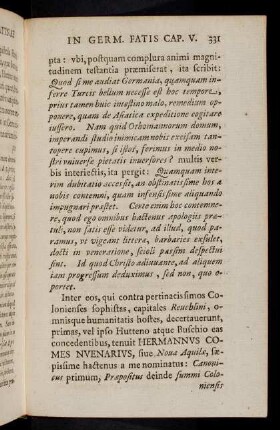 IN GERM. FATIS CAP. V. 331
pta: vbi, postquam complura animi magni-
tudinem testantia præmiserat, ita scribit:
Quod si me audiat Germania, quamquam in-
ferre Turcis bellum necesse est hoc tempore,
prius tamen huic intestino malo, remedium op-
ponere, quam de Asiatica expeditione cogitare
iussero. Nam quid Othomannorum domum,
imperandi studio inimicam nobis excisam tan-
topere cupimus, si istos, ferimus in medio no-
stri vniuersæ pietatis inuersores? multis ver-
bis interiectis, ita pergit: Quamquam inte-
rim dubitatio accessit, an obstinatissime hos a
nobis contemni, quam infensissime aliquando
impugnari præstet. Certe enim hoc contemne-
re, quod ego omnibus hactenus apologiis præ-
tuli, non satis esse videtur, ad illud, quod pa-
ramus, vt vigeant litteræ, barbaries exsulet,
docti in veneratione, scioli passim despectui
sint. Id quod Christo adiuuante, ad aliquem
iam progressum deduximus, sed non, quo o-
portet.
Inter eos, qui contra pertinatissimos Co-
lonienses sophistes, capitales Reuchlini, o-
mnisque humanitatis hostes, decertauerunt,
primas, vel ipso Hutteno atque Buschio eas
concedentibus, tenuit HERMANNVS CO-
MES NVENARIVS, siue Noua Aquila, sæ-
pissime hactenus a me nominatus: Canoni-
cus primum, Præpositus deinde summi Colo-
niensis